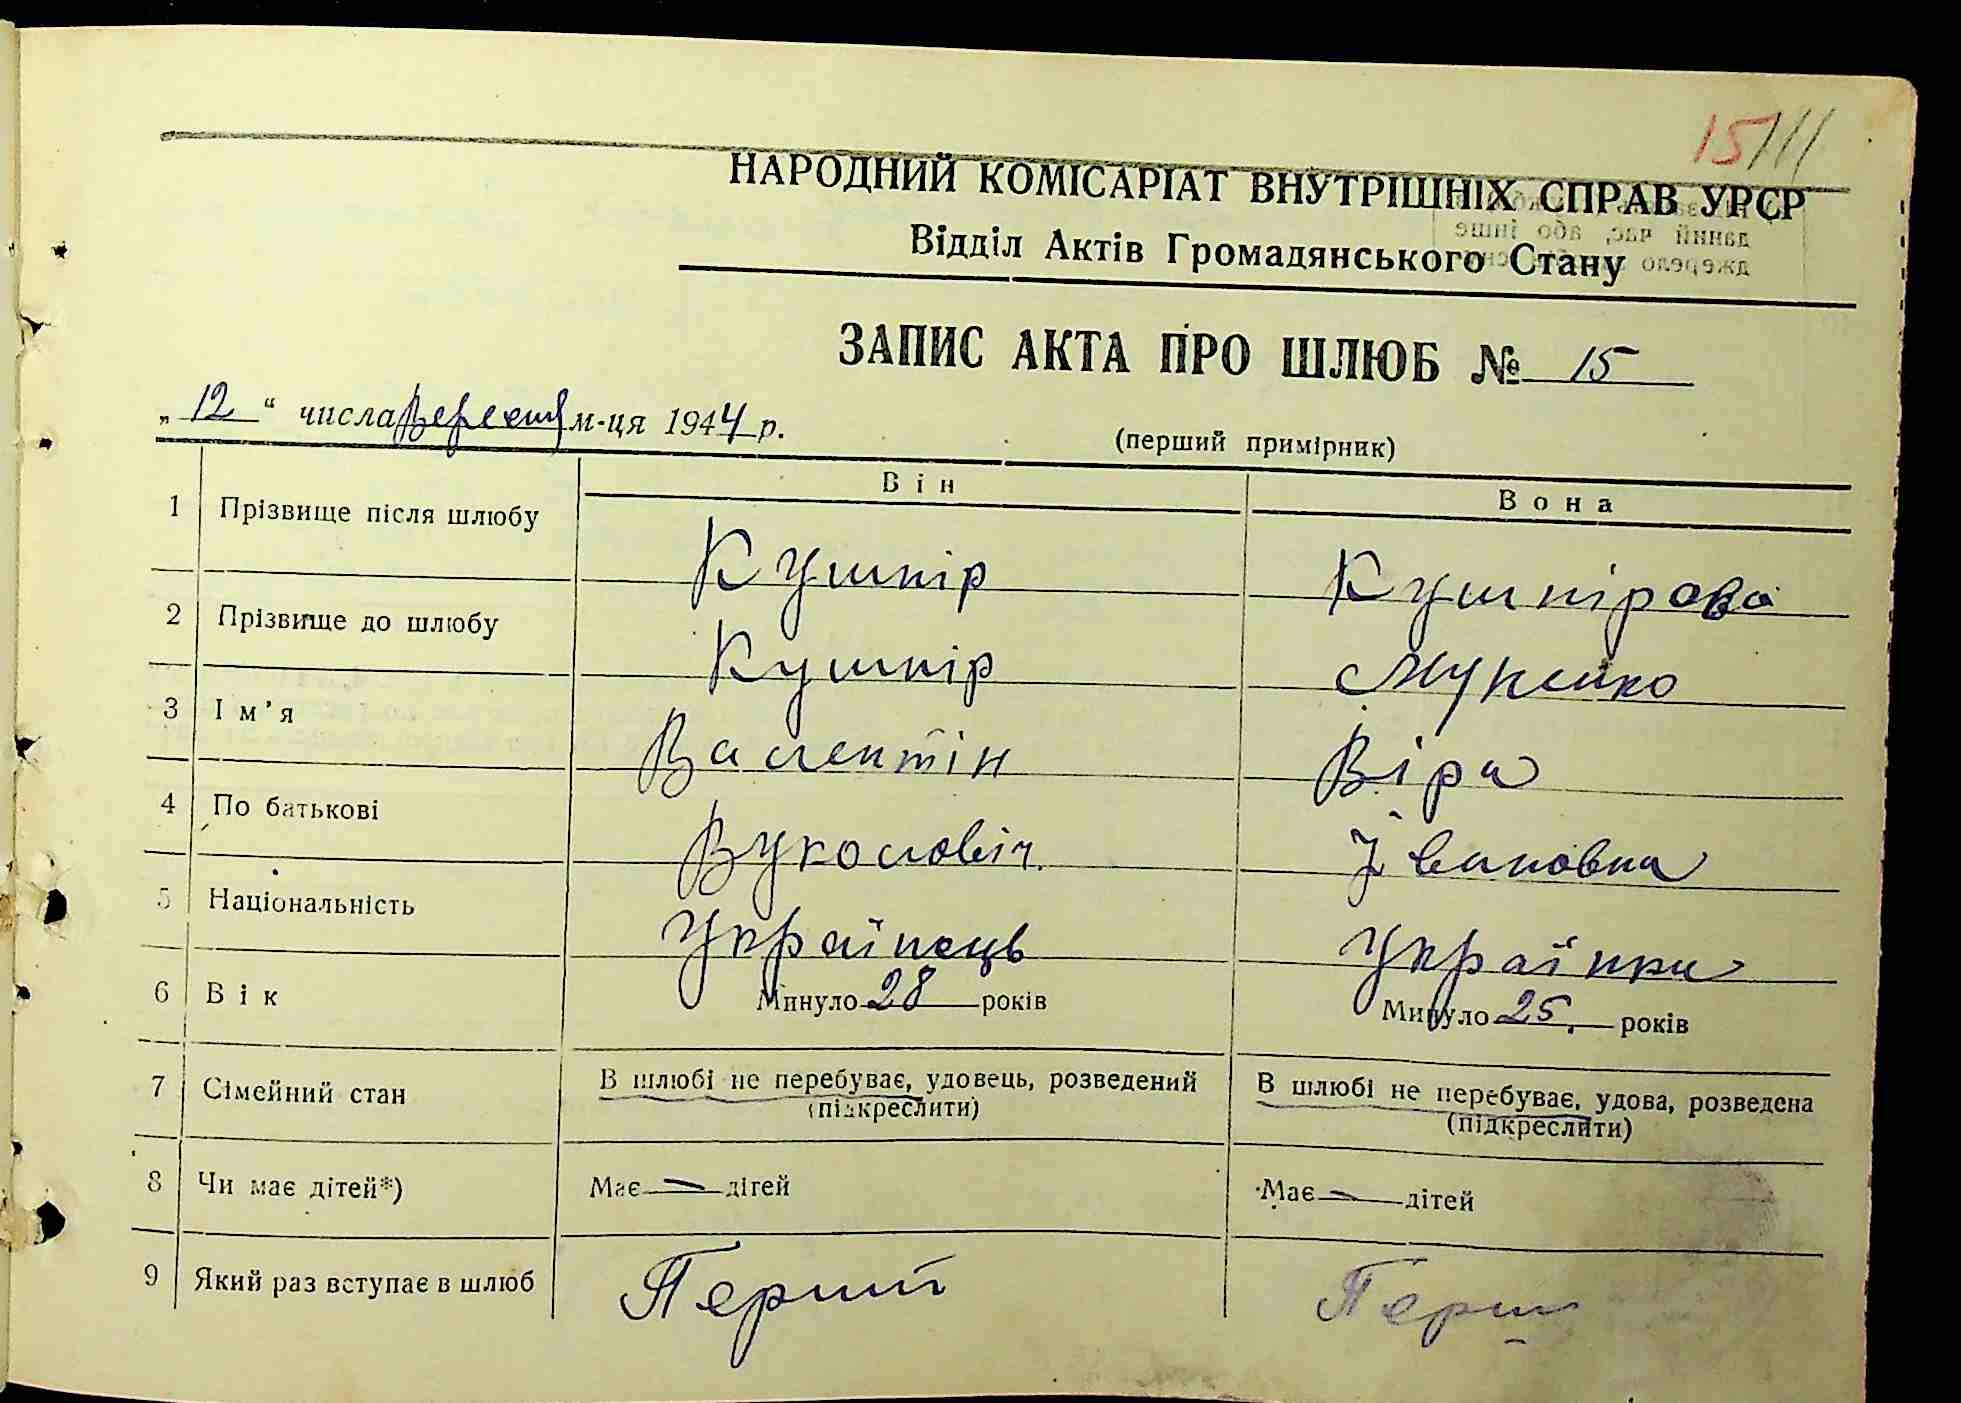 15/11
НАРОДНИЙ КОМІСАРІАТ ВНУТРІШНІХ СПРАВ УРСР
Відділ Актів Громадянського Стану
ЗАПИС АКТА ПРО ШЛЮБ № 15
„ 12 “ числа Вересня м-ця 1944 р.
(перший примірник)
Він Вона
1 Прізвище після шлюбу Кушнір Кушнірова
2 Прізвище до шлюбу Кушнір
3 Ім’я Валентін Віра
4 По батькові Вуколовіч Івановна
5 Національність Українець Українка
6 Вік Минуло 28 років Минуло 25. років
7 Сімейний стан В шлюбі не перебуває, удовець, розведений В шлюбі не перебуває, удова, розведена
(підкреслити) (підкреслити)
8 Чи має дітей*) Має — дітей Має — дітей
9 Який раз вступає в шлюб Перший Перш